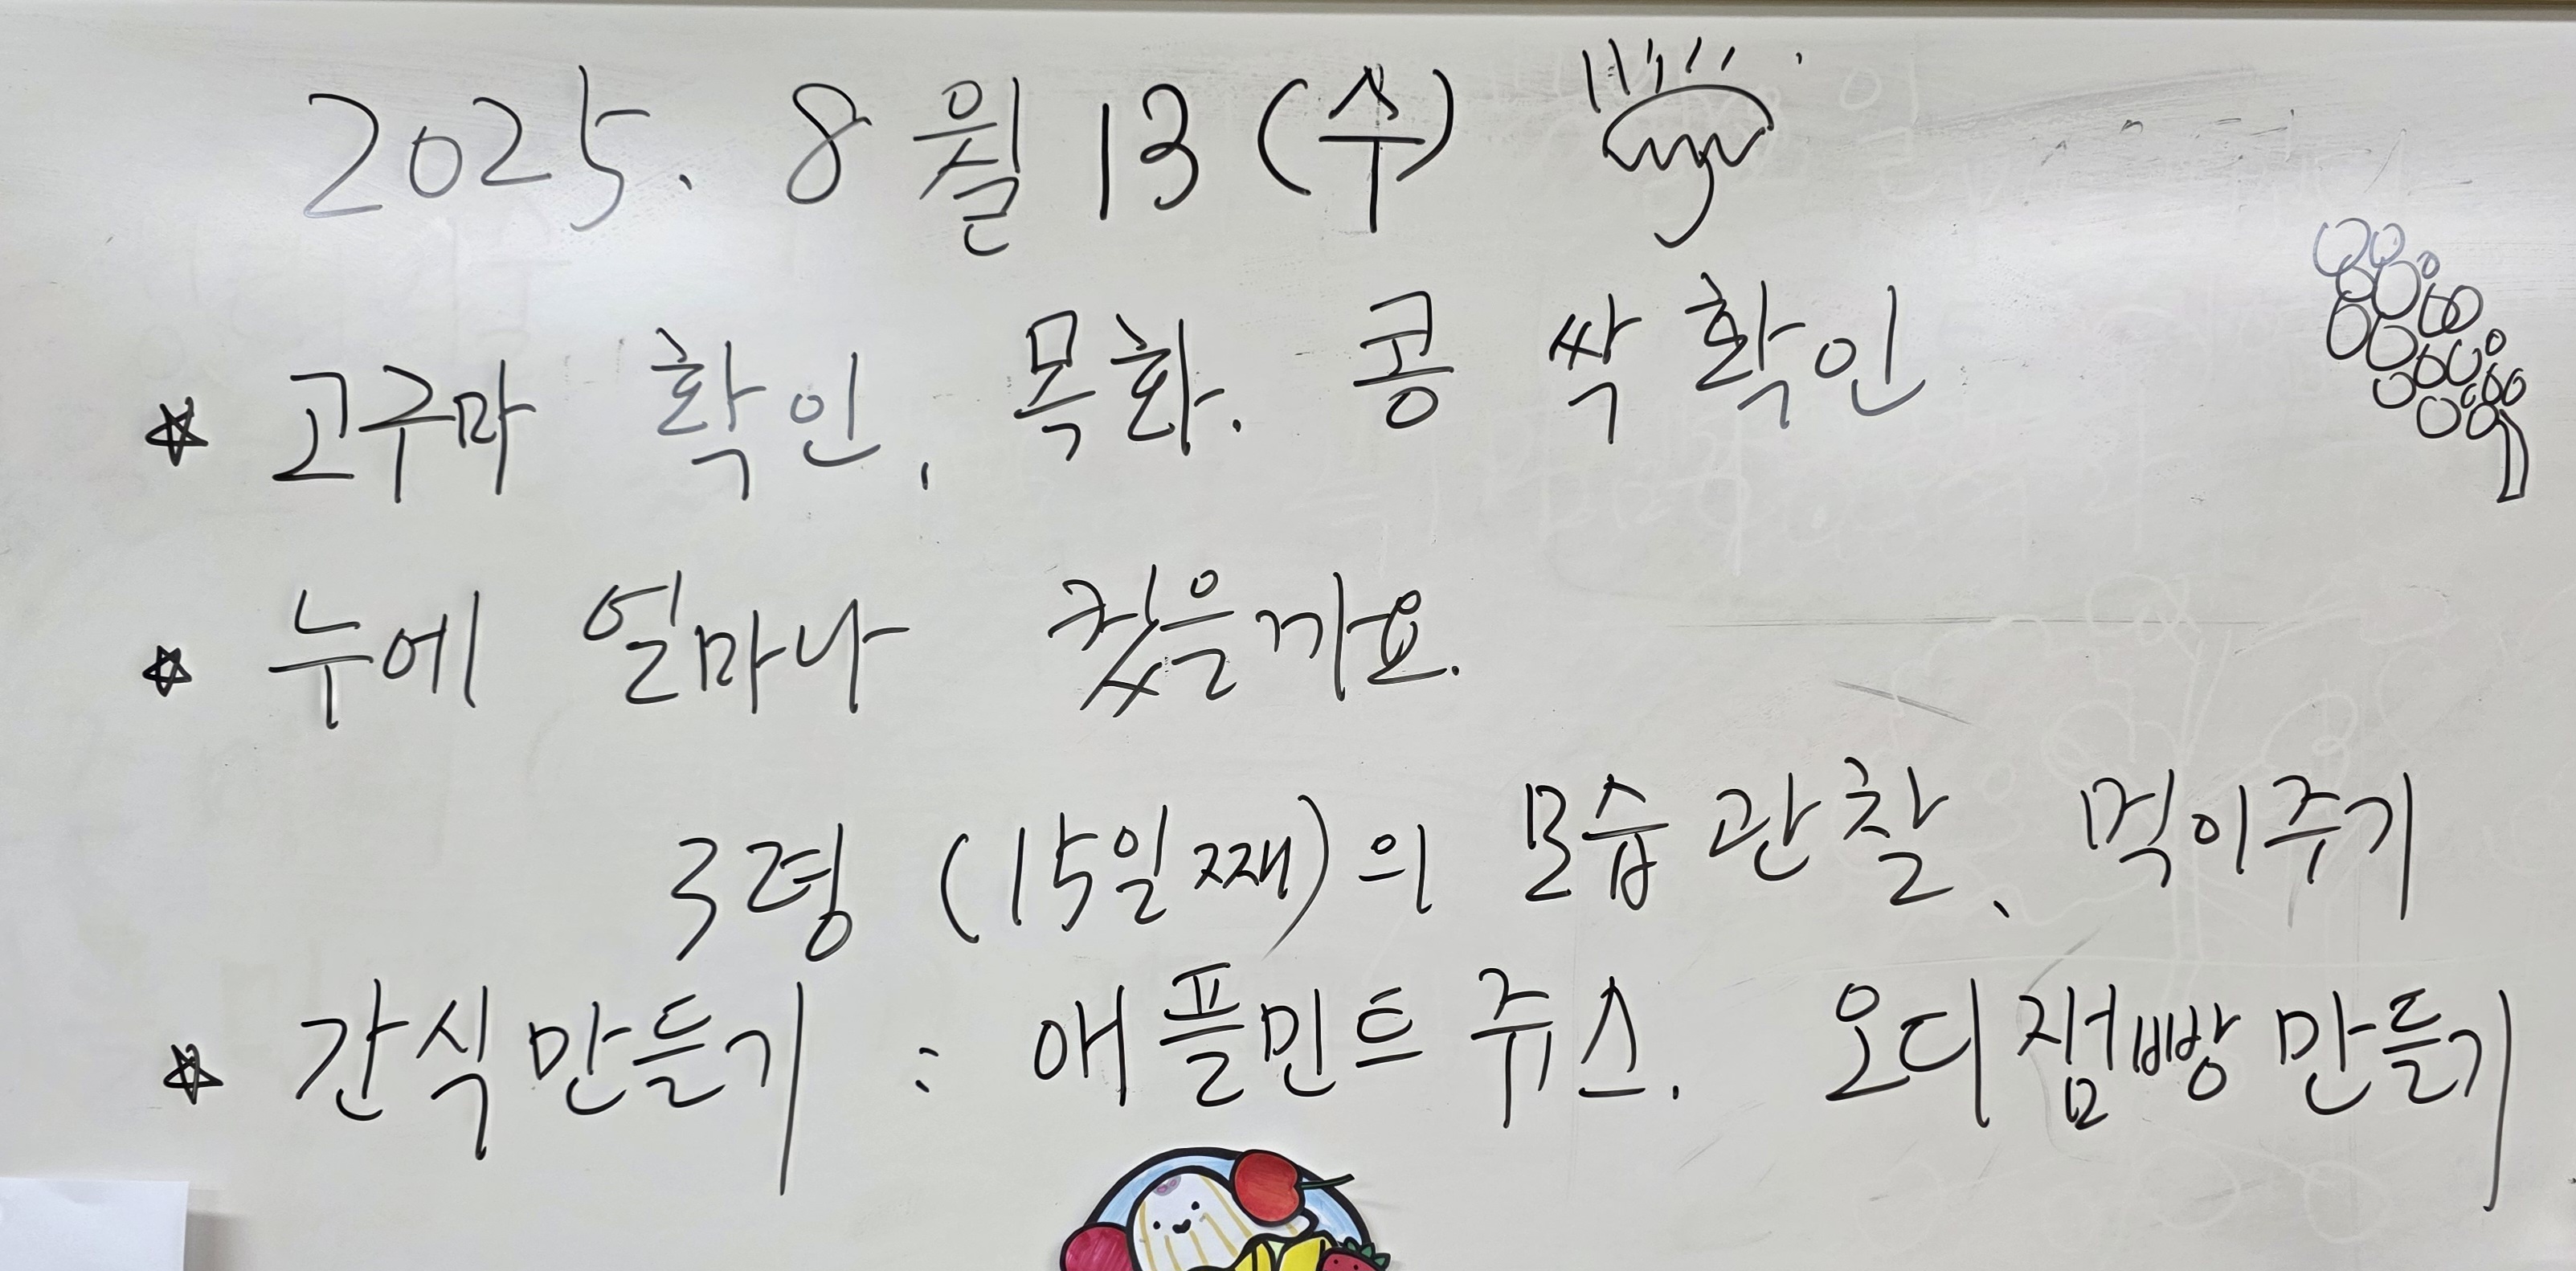 2025. 8월 13 (수)
☆ 고구마 확인, 목화. 콩 싹 확인
☆ 누에 얼마나 컸을까요.
3령 (15일째)의 모습 관찰, 먹이주기
☆ 간식 만들기 : 애플민트 쥬스. 오디잼빵 만들기